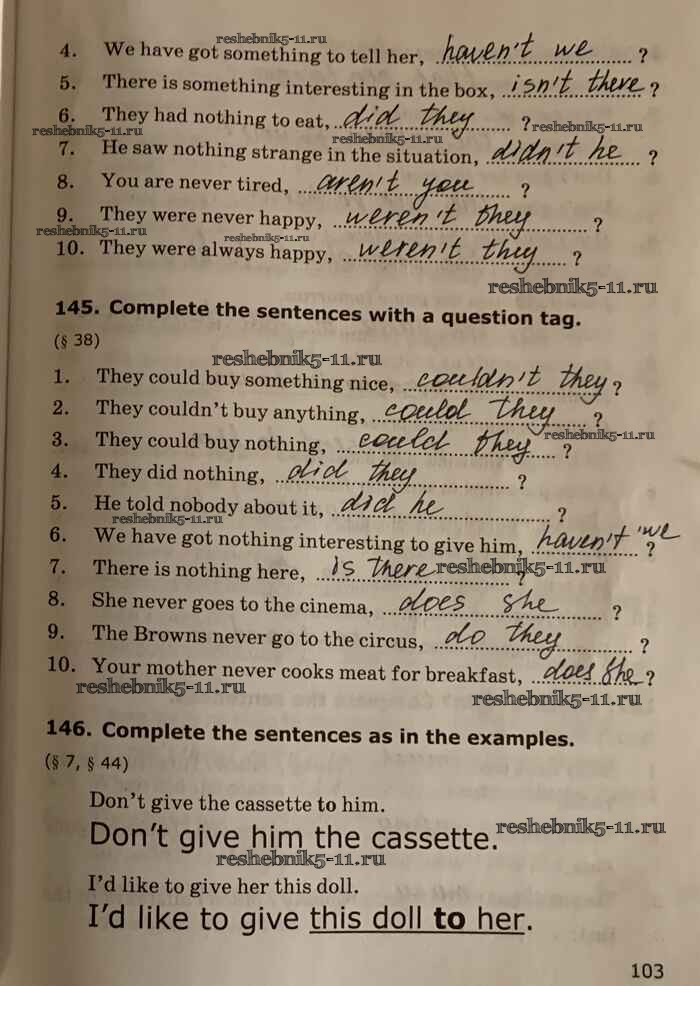 reshebnik5-11.ru
4. We have got something to tell her, haven't we ?
5. There is something interesting in the box, isn't there ?
6. They had nothing to eat, did they ?
reshebnik5-11.ru reshebnik5-11.ru reshebnik5-11.ru
7. He saw nothing strange in the situation, didn't he ?
8. You are never tired, aren't you ?
9. They were never happy, weren't they ?
reshebnik5-11.ru reshebnik5-11.ru
10. They were always happy, weren't they ?
reshebnik5-11.ru
145. Complete the sentences with a question tag.
(§ 38)
reshebnik5-11.ru
1. They could buy something nice, couldn't they ?
2. They couldn't buy anything, could they ?
reshebnik5-11.ru
3. They could buy nothing, could they ?
4. They did nothing, did they ?
5. He told nobody about it, did he ?
reshebnik5-11.ru
6. We have got nothing interesting to give him, haven't we ?
7. There is nothing here, is there ?
reshebnik5-11.ru
8. She never goes to the cinema, does she ?
9. The Browns never go to the circus, do they ?
10. Your mother never cooks meat for breakfast, does she ?
reshebnik5-11.ru reshebnik5-11.ru
146. Complete the sentences as in the examples.
(§ 7, § 44)
Don't give the cassette to him.
Don't give him the cassette.
reshebnik5-11.ru
reshebnik5-11.ru
I'd like to give her this doll.
I'd like to give this doll to her.
103